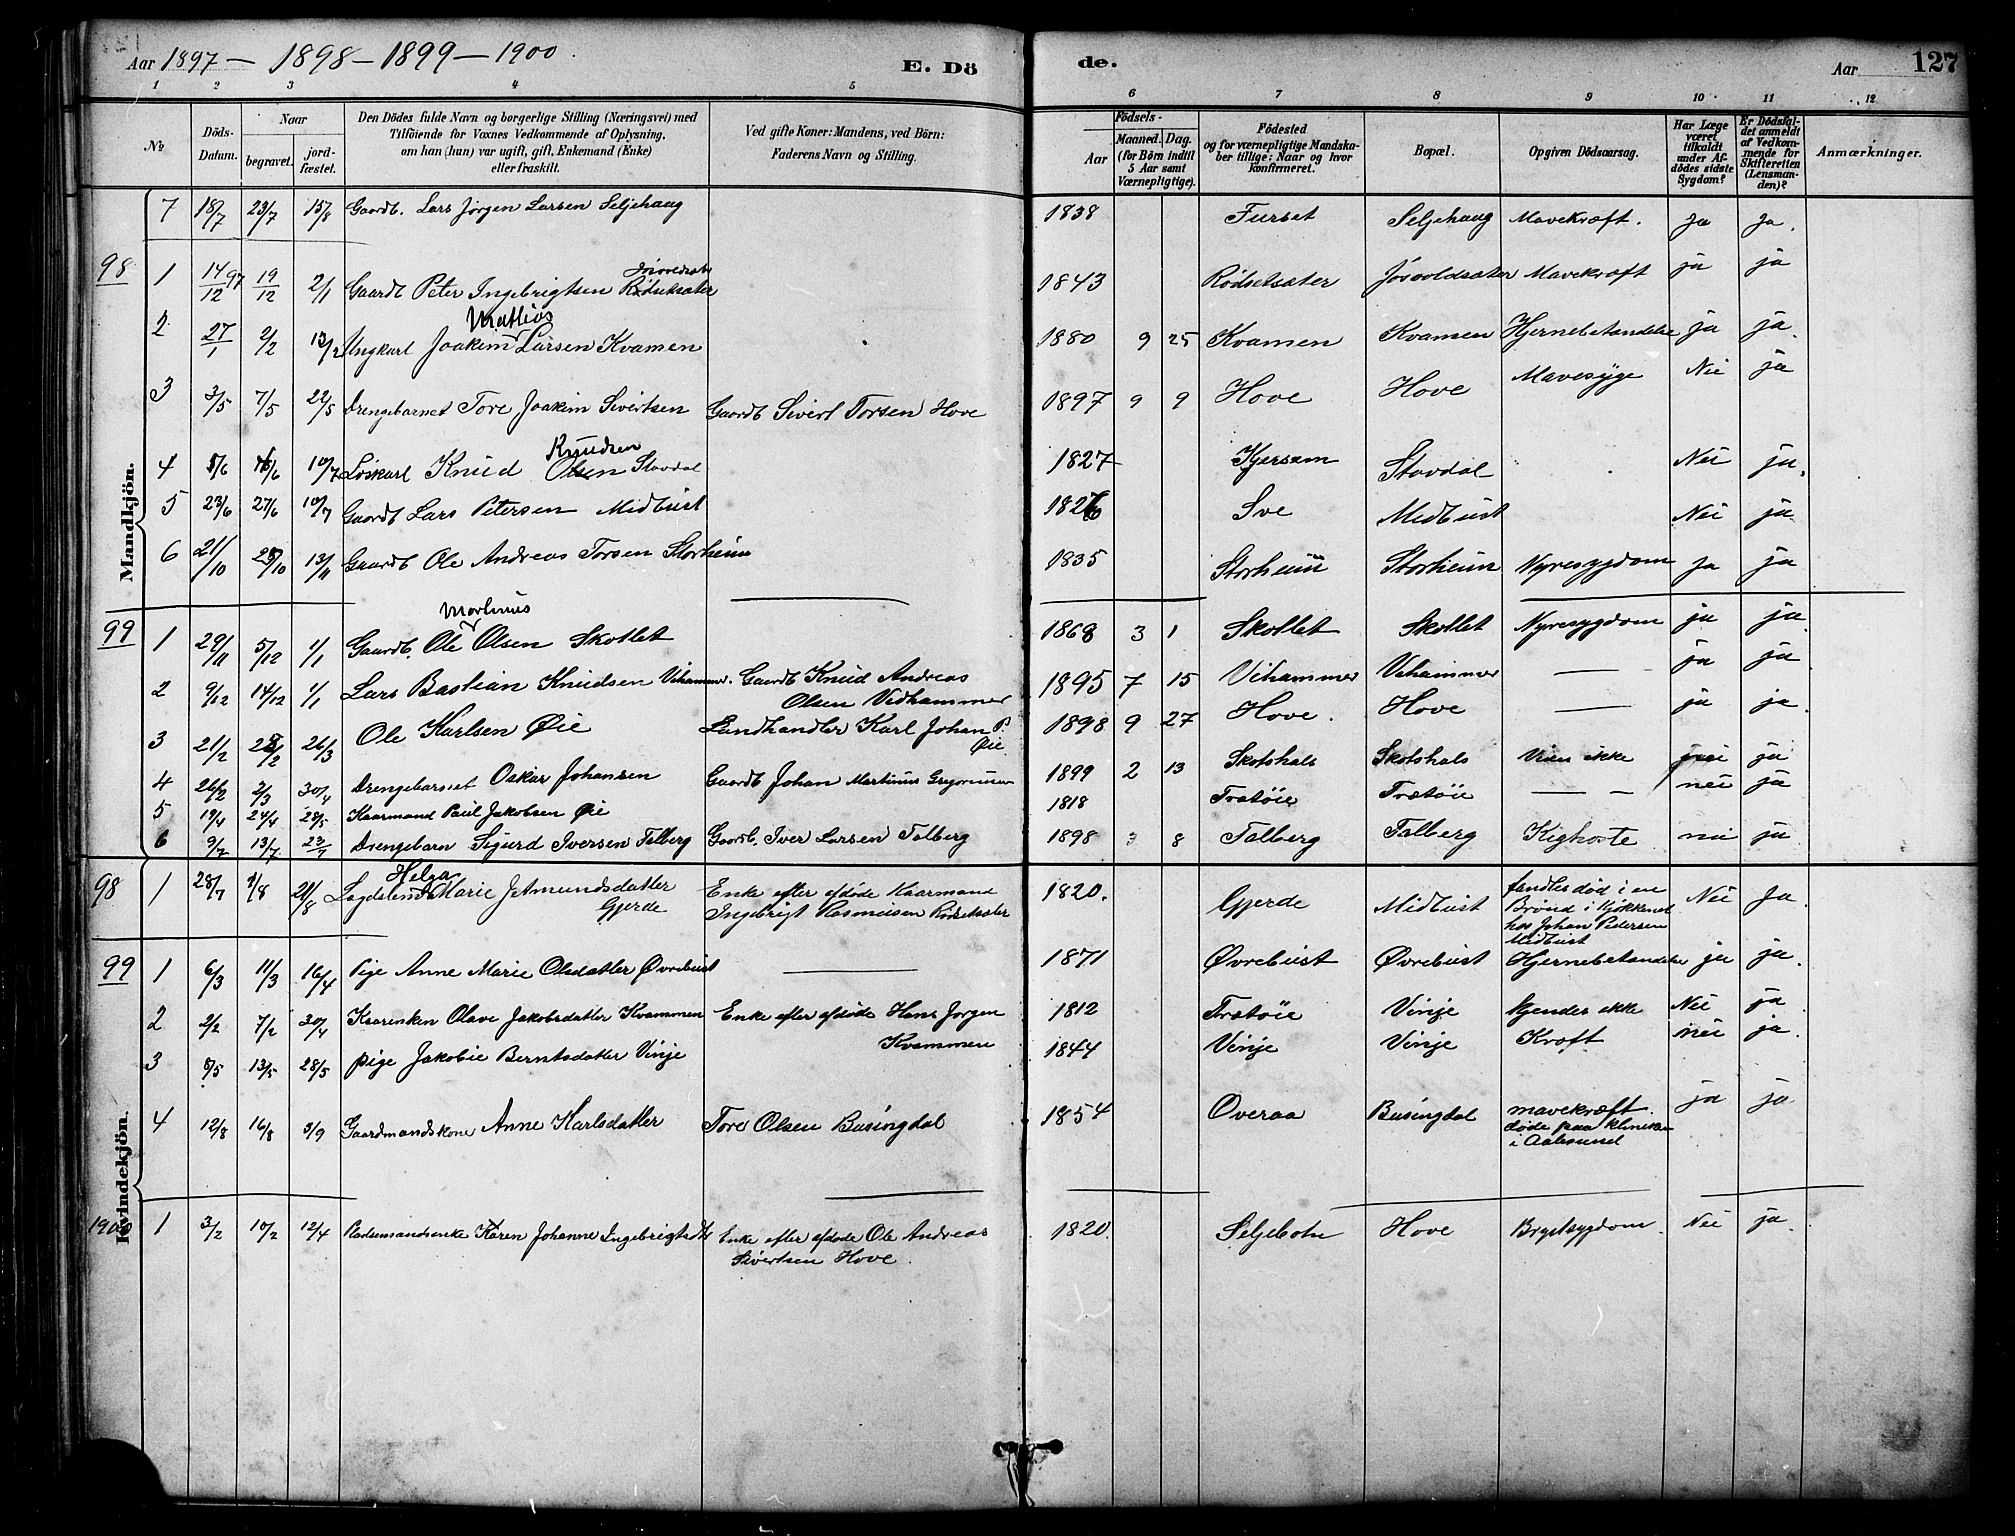 Aar 1897 – 1898 – 1899 – 1900
E. Dö
de.
Aar
127
1 2 3 4 5 6 7 8 9 10 11 12
№
Döds-Datum.
Naar
begravet.
jord-fæstet.
Den Dödes fulde Navn og borgerlige Stilling (Næringsvei) med
Tilföiende for Voxnes Vedkommende af Oplysning,
om han (hun) var ugift, gift, Enkemand (Enke)
eller fraskilt.
Ved gifte Koner: Mandens, ved Børn:
Faderens Navn og Stilling.
Födsels-
Aar
Maaned. Dag.
(for Börn indtil
5 Aar samt
Værnepligtige).
Födested
og for værnepligtige Mandska-
ber tillige: Naar og hvor
konfirmeret.
Bopæl.
Opgiven Dödsaarsag.
Har Læge
været
tilkaldt
under Af-
dödes sidste
Sygdom?
Er Dödsfal-
det anmeldt
af Vedkom-
mende for
Skifteretten
(Lensman-
den)?
Anmærkninger.
Mandkjön.
7 18/7 23/7 15/8 Gaardb. Lars Jørgen Larsen Seljehaug 1838 Furset Seljehaug Mavekræft. Ja Ja.
98
1 14/12 97 19/12 2/1 Gaardb Peter Ingebrigtsen Rødsetsæter 1843 Rødsetsæter Jøsvoldsæter Mavekræft ja ja
Mathias
2 27/1 2/2 13/2 Ungkarl Joakim Larsen Kvamen 1880 9 25 Kvamen Kvamen Hjernebetændelse ja ja.
3 3/5 7/5 22/5 Drengebarnet Tore Joakim Sivertsen Gaardb Sivert Torsen Hove 1897 9 9 Hove Hove Mavesyge Nei ja
Knudsen
4 5/6 /6 10/7 Løskarl Knud Olsen Stavdal 1827 Kjersem Stavdal Nei ja.
5 23/6 27/6 10/7 Gaardb Lars Petersen Midtust 1826 Sve Midtust Nei ja
6 21/10 28/10 13/11 Gaardb Ole Andreas Torsen Storheim 1835 Storheim Storheim Nyresygdom Ja ja
99
Martinus
1 29/11 5/12 1/1 Gaardb. Ole Olsen Skotlet 1868 3 1 Skotlet Skotlet Nyresygdom ja ja
2 9/12 14/12 1/1 Lars Bastian Knudsen Vihammer. Gaardb Knud Andreas 1895 7 15 Vihammer Vihammer — ja ja
Olsen Vidhammer
3 21/2 2/2 26/3 Ole Karlsen Øie Landhandler Karl Johan P. 1898 9 27 Hove. Hove — ja ja.
Øie
4 26/2 2/3 30/4 Drengebarnet Oskar Johansen Gaardb Johan Martinus 1899 2 13 Skotshals Skotshals Vides ikke ja
5 19/4 24/4 28/5 Kaarmand Paul Jakobsen Øie 1818 Trætøie Trætøie — – nei ja
6 9/7 13/7 23/7 Drengebarn Sigurd Iversen Talberg Gaardb. Iver Larsen Talberg 1898 3 8 Talberg Talberg Kighoste nei ja
Kvindekjön.
98
Helga
1 28/7 1/8 21/8 Lægdslem Marie J Amundsdatter Enke efter afdøde Kaarmand 1820. Gjerde Midtust fandtes død i en Nei Ja.
Gjerde Ingebrigt Rasmussen Rødsetsæter Brønd i Kjøkkenet
hos Johan Pedersen
Midtust
99
1 6/3 11/3 16/4 Pige Anne Marie Olsdatter Øvrebust — 1871 Øvrebust Øvrebust Hjernebetændelse ja ja.
2 2/2 7/2 30/4 Kaarenken Olave Jakobsdatter Kvammen Enke efter afdøde Hans Jørgen 1812 Trætøie Vinje kjendes ikke Nei ja
Kvammen
3 8/5 13/5 28/5 pige Jakobie Berntsdatter Vinje 1844 Vinje Vinje Kræft nei ja.
4 12/8 16/8 3/9 Gaardmandskone Anne Karlsdatter Tore Olsen Busingdal 1854 Overaa Busingdal mavekræft. ja ja
døde paa kliniken
i Aalesund
1900
1 3/2 10/2 12/4 Karen Johanne Ingebrigtsdt Enke efter afdøde Ole Andreas 1820. Seljebotn Hove Brystsygdom. Nei ja.
Sivertsen Hove.